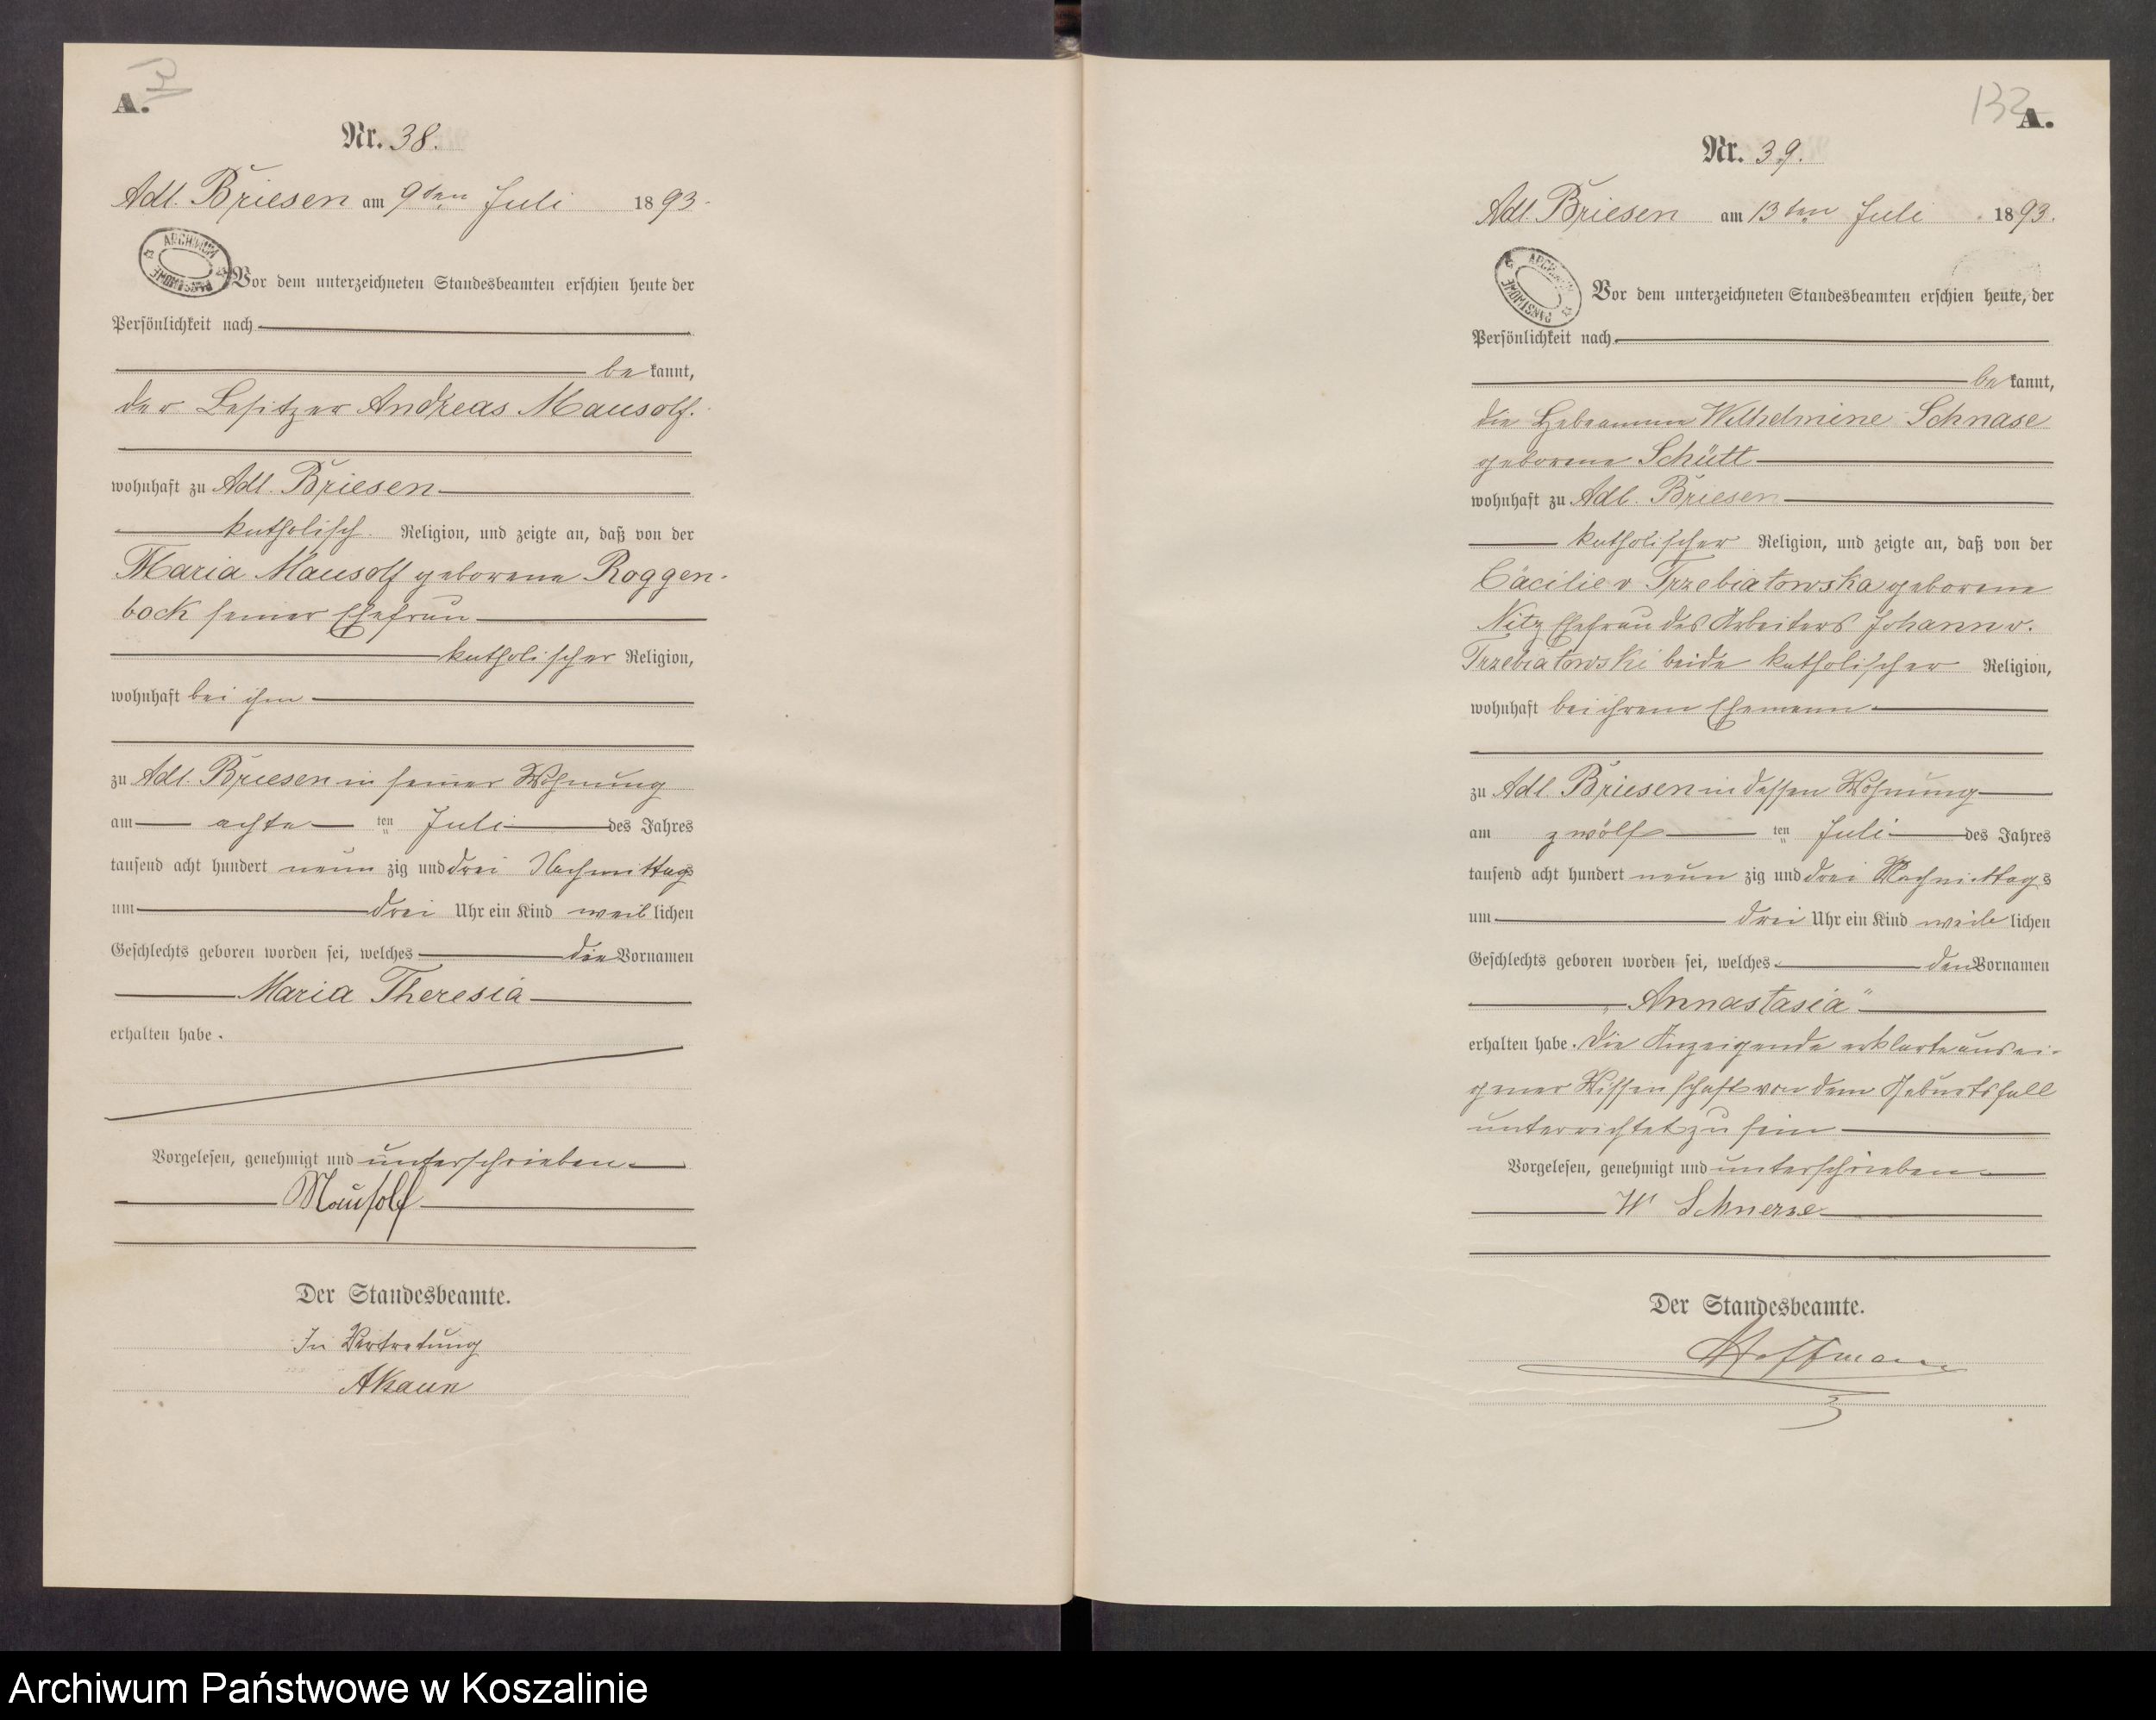 A.
Nr. 38.
Adl. Briesen am 9ten Juli 1893.
ARCHIWUM PAŃSTWOWE
Vor dem unterzeichneten Standesbeamten erschien heute der
Persönlichkeit nach
bekannt,
der Besitzer Andreas Mausolf.
wohnhaft zu Adl. Briesen
katholisch. Religion, und zeigte an, daß von der
Maria Mausolf geborene Roggen-
bock seiner Ehefrau
katholischer Religion,
wohnhaft bei ihm
zu Adl. Briesen in seiner Wohnung
am achte ten Juli des Jahres
tausend acht hundert neun zig und drei Nachmittags
um drei Uhr ein Kind weiblichen
Geschlechts geboren worden sei, welches die Vornamen
Maria Theresia
erhalten habe.
Vorgelesen, genehmigt und unterschrieben
Mausolf
Der Standesbeamte.
In Vertretung
132
A.
Nr. 39.
Adl. Briesen am 13ten Juli 1893.
ARCHIWUM PAŃSTWOWE
Vor dem unterzeichneten Standesbeamten erschien heute, der
Persönlichkeit nach
bekannt,
die Hebeamme Wilhelmine Schnase
geborene Schütt
wohnhaft zu Adl. Briesen
katholischer Religion, und zeigte an, daß von der
Cäcilie v Trzebiatowska geborene
Nitz Ehefrau des Arbeiters Johann v.
Trzebiatowski beide katholischer Religion,
wohnhaft bei ihrem Ehemann
zu Adl. Briesen in dessen Wohnung
am zwölf ten Juli des Jahres
tausend acht hundert neun zig und drei Nachmittags
um drei Uhr ein Kind weiblichen
Geschlechts geboren worden sei, welches den Vornamen
„Annastasia"
erhalten habe. Die Anzeigende erklarte aus ei-
gener Wissenschaft von dem Geburtsfall
unterrichtet zu sein
Vorgelesen, genehmigt und unterschrieben
W Schnase
Der Standesbeamte.
Hoffmann
Archiwum Państwowe w Koszalinie